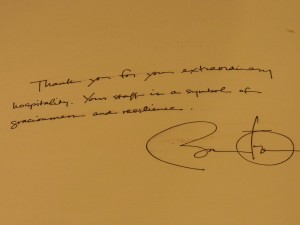 Thank you for your extraordinary
hospitality. Your staff is a symbol of
graciousness and resilience.